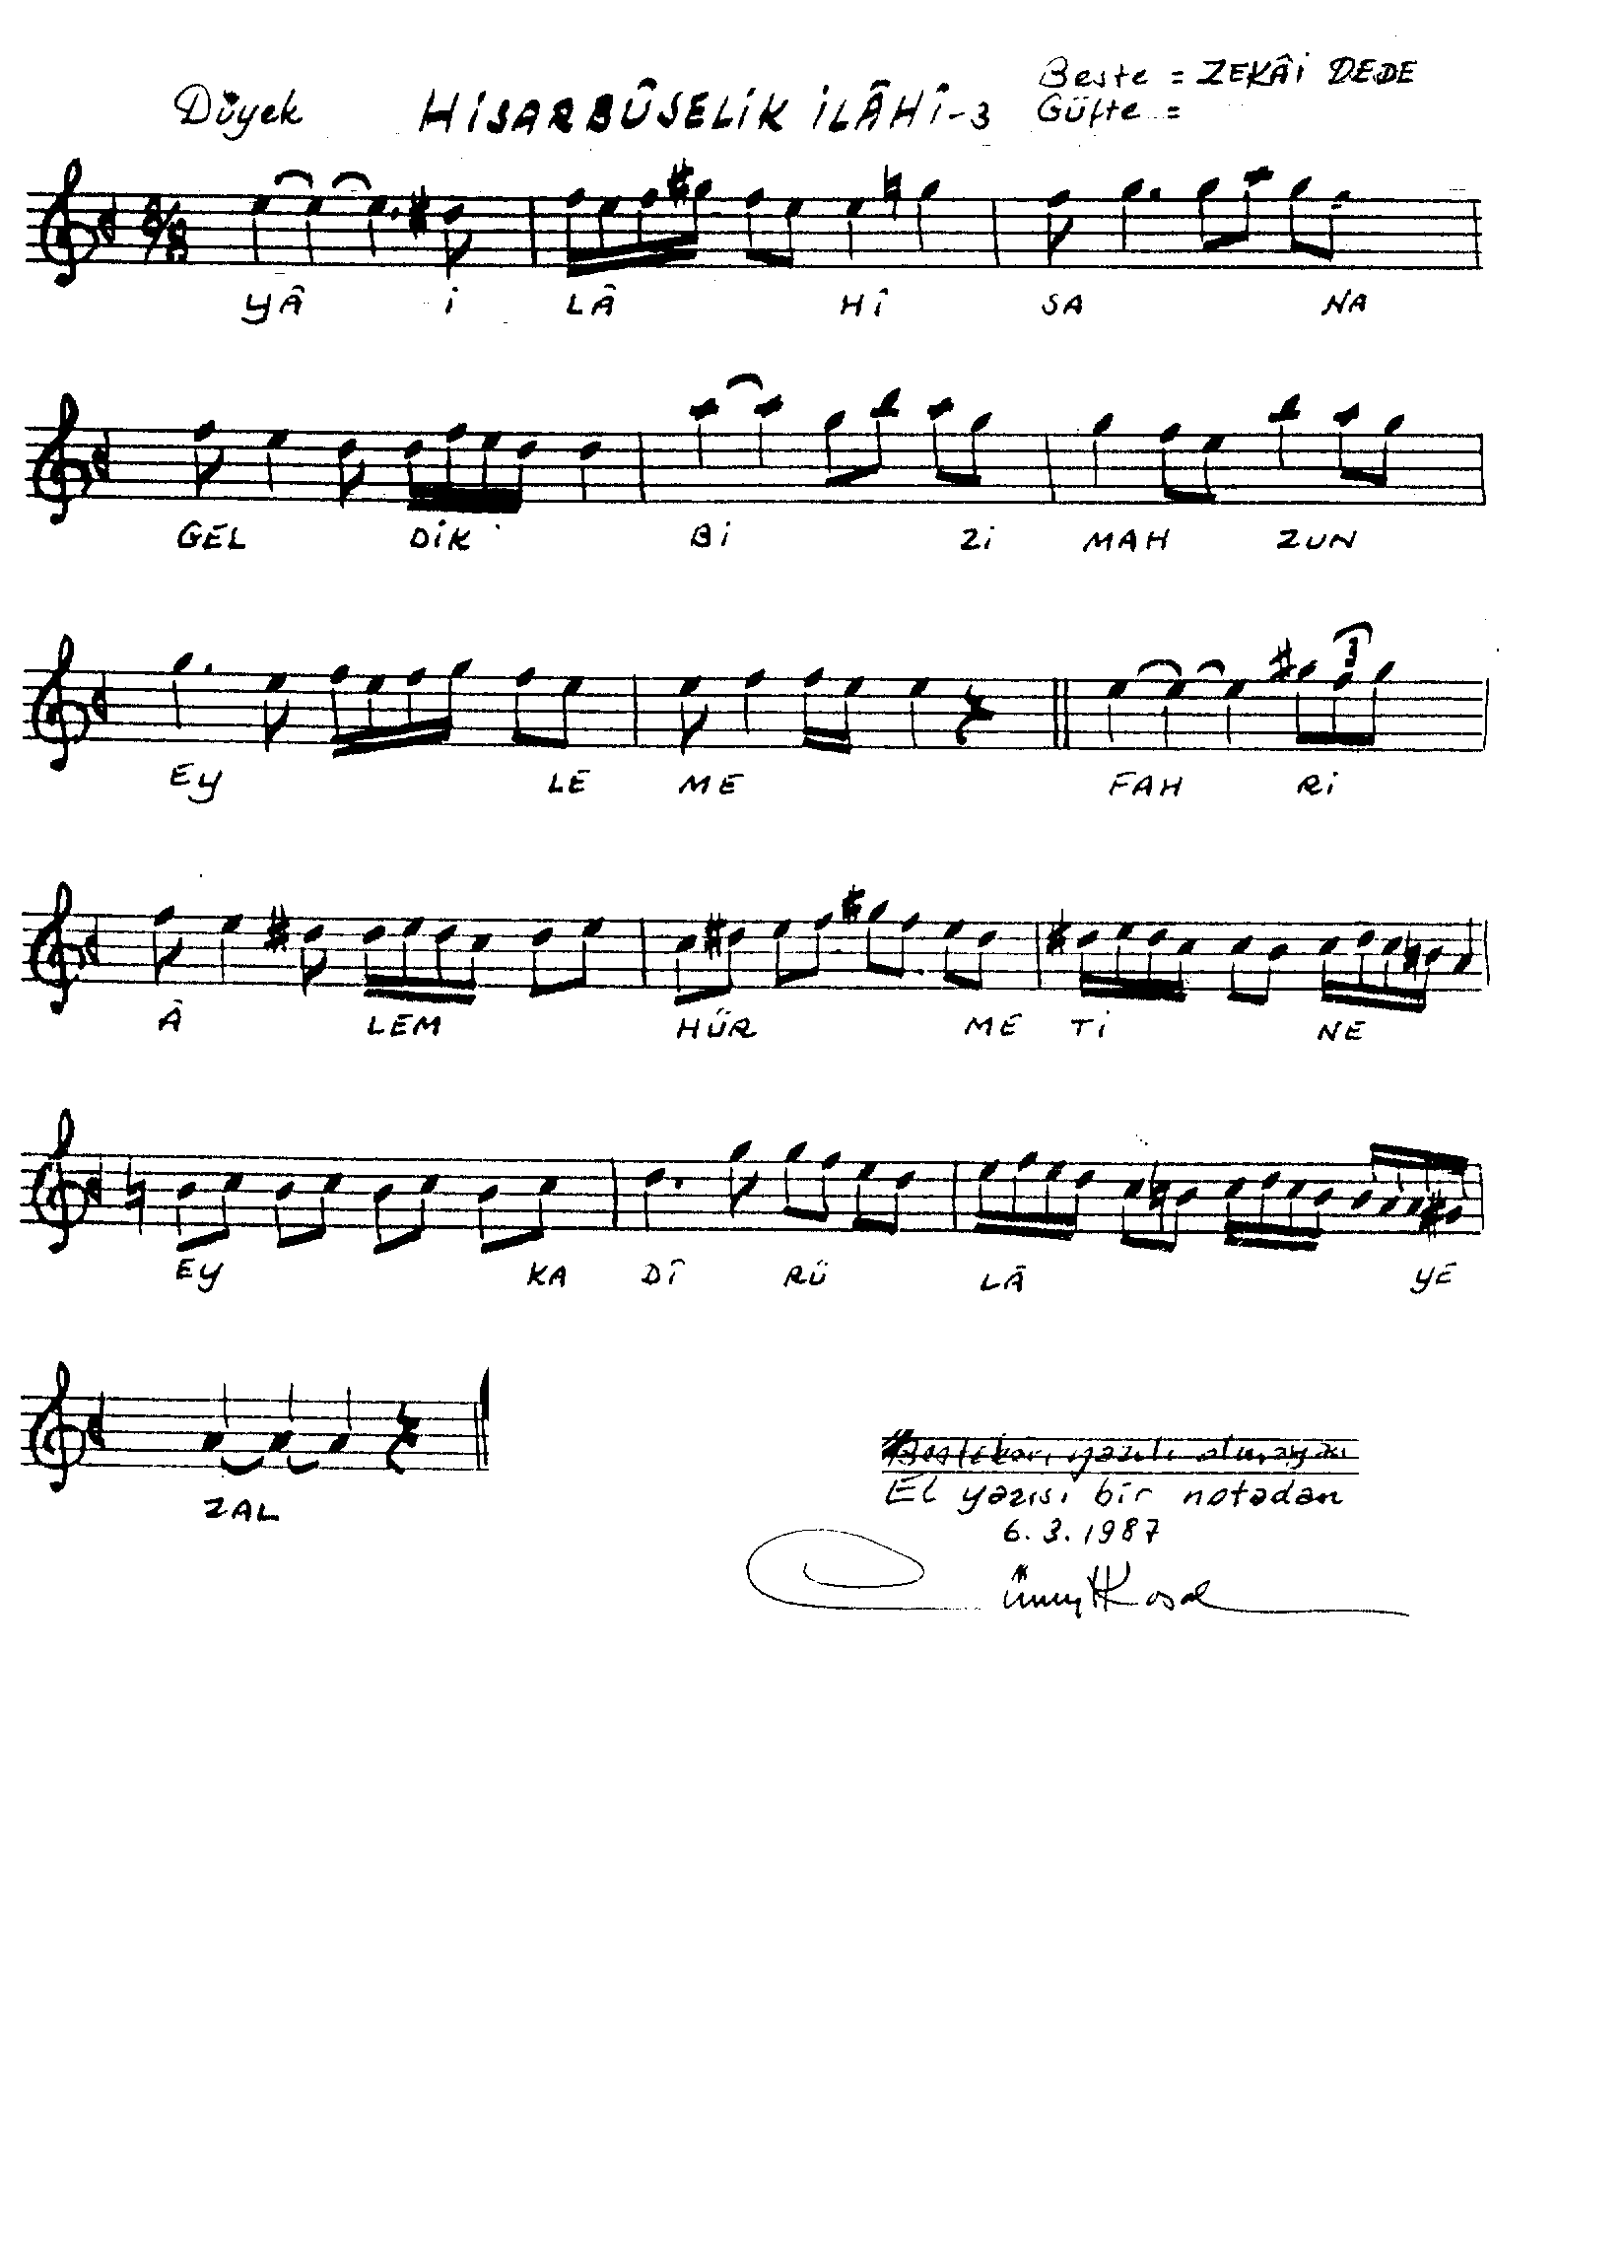 Düyek HİSARBÛSELİK İLÂHÎ-3 Beste = ZEKÂİ DEDE
Güfte =
8/8
YÂ İ LÂ HÎ SA NA
GEL DİK Bİ Zİ MAH ZUN
EY LE ME FAH Rİ
3
Â LEM HÜR ME Tİ NE
EY KA DÎ RÜ LÂ YE
ZAL
Bestekârı yazılı olmayan
El yazısı bir notadan
6.3.1987